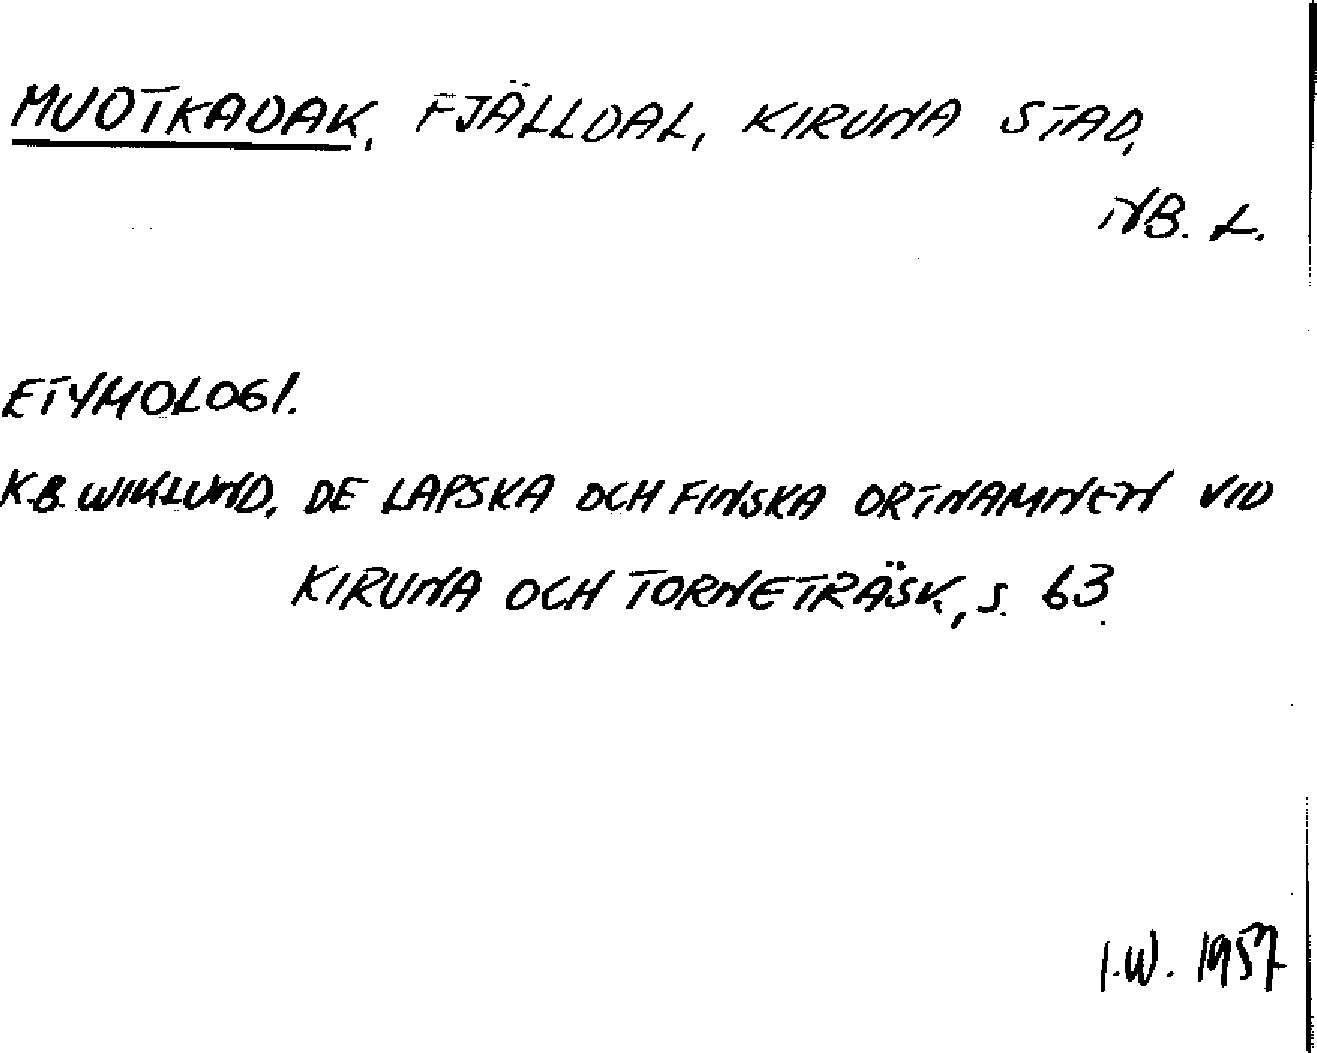 MUOTKADAK, FJÄLLDAL, KIRUNA STAD,
NB. L.
ETYMOLOGI.
K.B. WIKLUND, DE LAPSKA OCH FINSKA ORTNAMNEN VID
KIRUNA OCH TORNETRÄSK, S. 63.
I.W. 1957